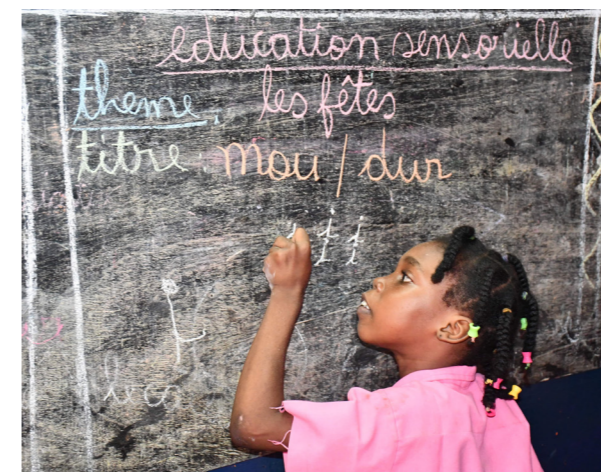 éducation sensorielle
thème: les fêtes
titre: mou / dur
i i i
i i